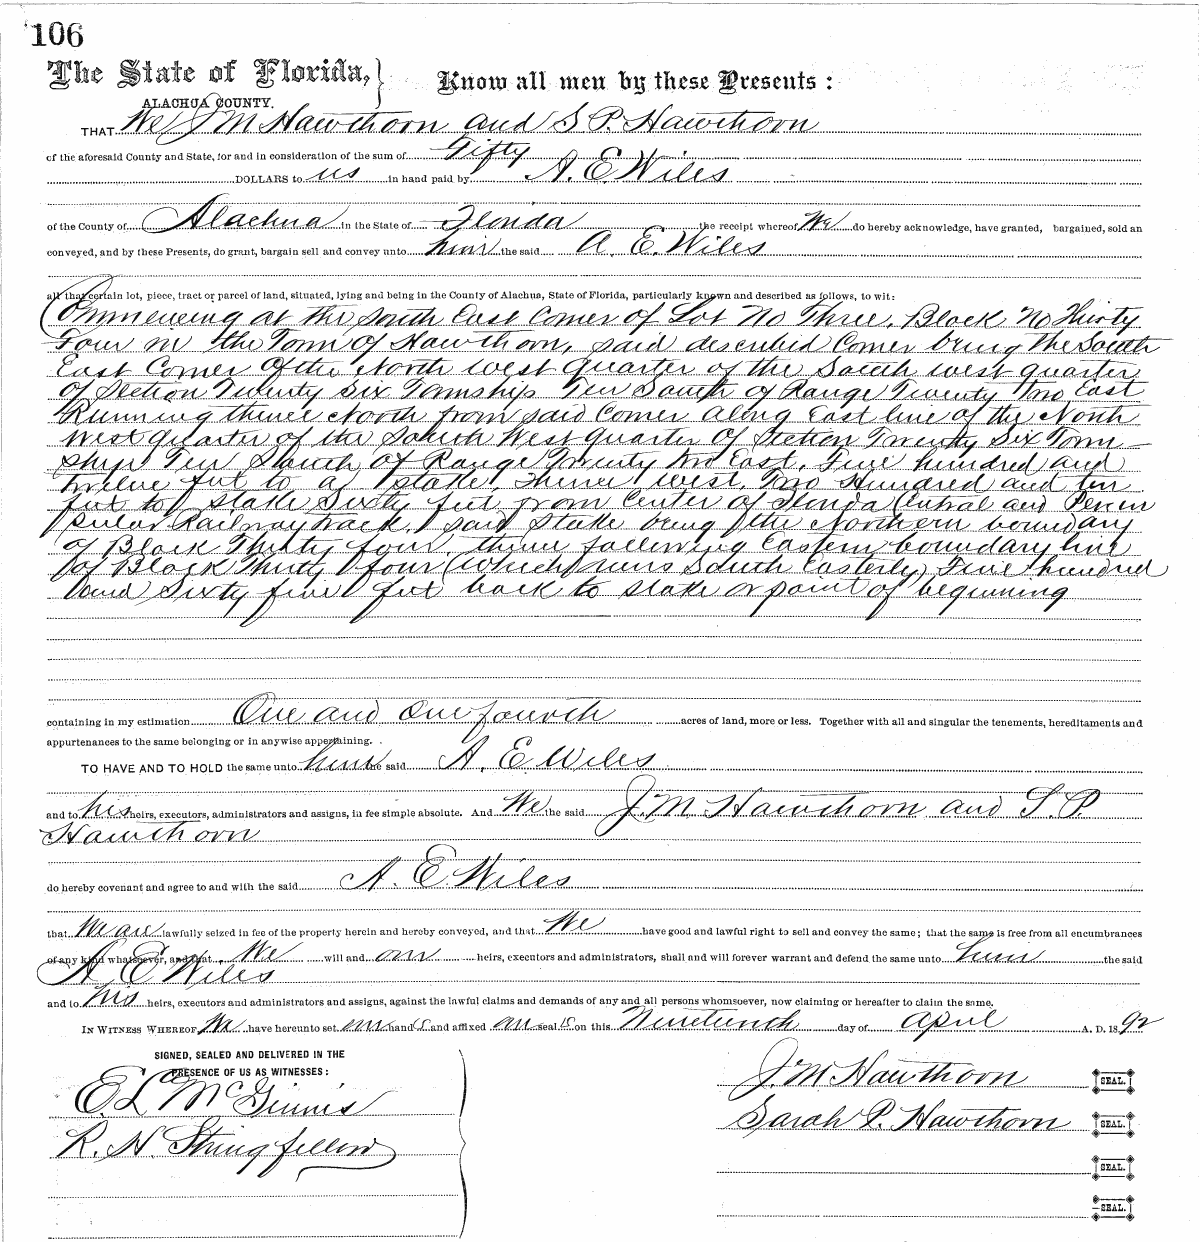 106
The State of Florida, } Know all men by these Presents:
ALACHUA COUNTY.
THAT We J M Hawthorn and S P. Hawthorn
of the aforesaid County and State, for and in consideration of the sum of Fifty
DOLLARS to us in hand paid by A. E. Wiles
of the County of Alachua in the State of Florida the receipt whereof We do hereby acknowledge, have granted, bargained, sold an
conveyed, and by these Presents, do grant, bargain sell and convey unto him the said A. E. Wiles
all that certain lot, piece, tract or parcel of land, situated, lying and being in the County of Alachua, State of Florida, particularly known and described as follows, to wit:
Commencing at the South East Corner of Lot No Three, Block No Thirty
Four in the Town of Hawthorn, said described Corner being the South
East Corner of the North west quarter of the South west quarter
of Section Twenty Six Township Ten South of Range Twenty two East
Running thence North from said Corner along East line of the North
West quarter of the South West quarter of Section Twenty Six Town-
ship Ten South of Range Twenty two East, Five hundred and
twelve feet to a stake thence west, Two Hundred and ten
feet to stake Sixty feet from Center of Florida Central and Penin
sular Railway track, said Stake being the Northern boundary
of Block Thirty four, thence following Eastern boundary line
of Block Thirty four (which runs South Easterly) Five hundred
and Sixty five feet back to stake or point of beginning
containing in my estimation One and One fourth acres of land, more or less. Together with all and singular the tenements, hereditaments and
appurtenances to the same belonging or in anywise appertaining.
TO HAVE AND TO HOLD the same unto him the said A. E Wiles
and to his heirs, executors, administrators and assigns, in fee simple absolute. And We the said J. M Hawthorn and S. P.
Hawthorn
do hereby covenant and agree to and with the said A. E. Wiles
that We are lawfully seized in fee of the property herein and hereby conveyed, and that We have good and lawful right to sell and convey the same; that the same is free from all encumbrances
of any kind whatsoever, and that We will and our heirs, executors and administrators, shall and will forever warrant and defend the same unto him the said
A E Wiles
and to his heirs, executors and administrators and assigns, against the lawful claims and demands of any and all persons whomsoever, now claiming or hereafter to claim the same.
IN WITNESS WHEREOF We have hereunto set our hands and affixed our seals on this Nineteenth day of April A. D. 1892
SIGNED, SEALED AND DELIVERED IN THE
PRESENCE OF US AS WITNESSES:
J. M Hawthorn SEAL.
E. L McGinnis
Sarah P. Hawthorn SEAL.
R. H. Stringfellow
SEAL.
SEAL.